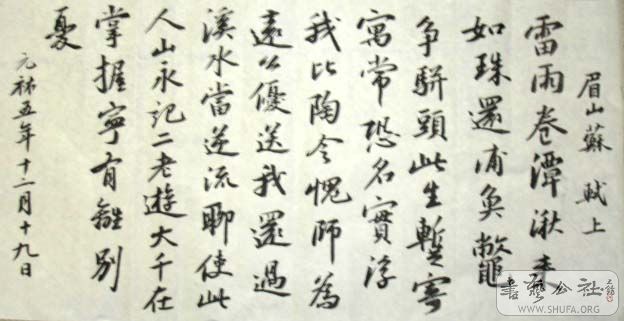 眉山蘇 軾上
雷雨卷潭湫来
如珠還浦魚鼈
争駢頭此生暫寄
寓常恐名實浮
我比陶令愧師為
遠公優送我還過
溪水當逆流聊使此
人山永記二老遊大千在
掌握寧有離別
憂
元祐五年十二月十九日
書藝公社
WWW.SHUFA.ORG